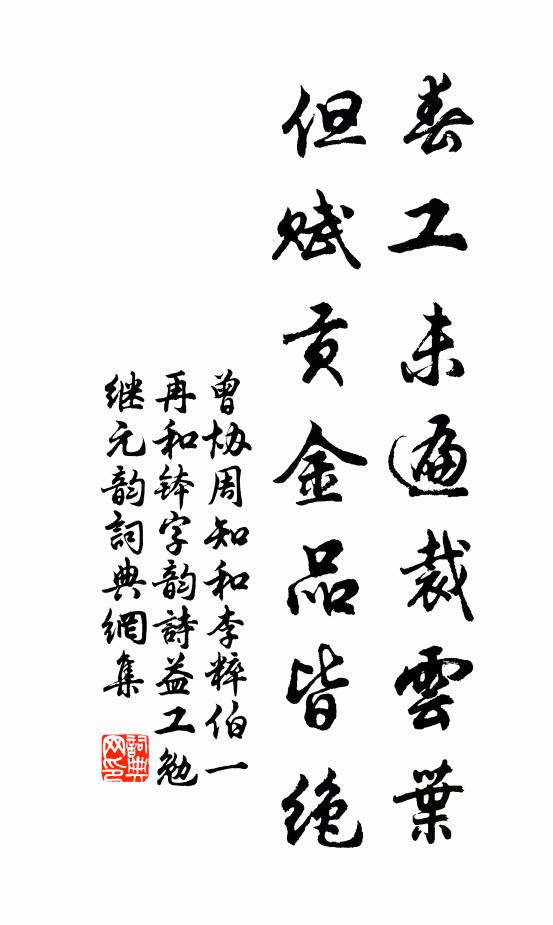 春工未遍裁雲葉
但賦貢金品皆絶
曾协周知和李粹伯一
再和钵字韵詩益工勉
继元韵詞典網集
詞典
网印